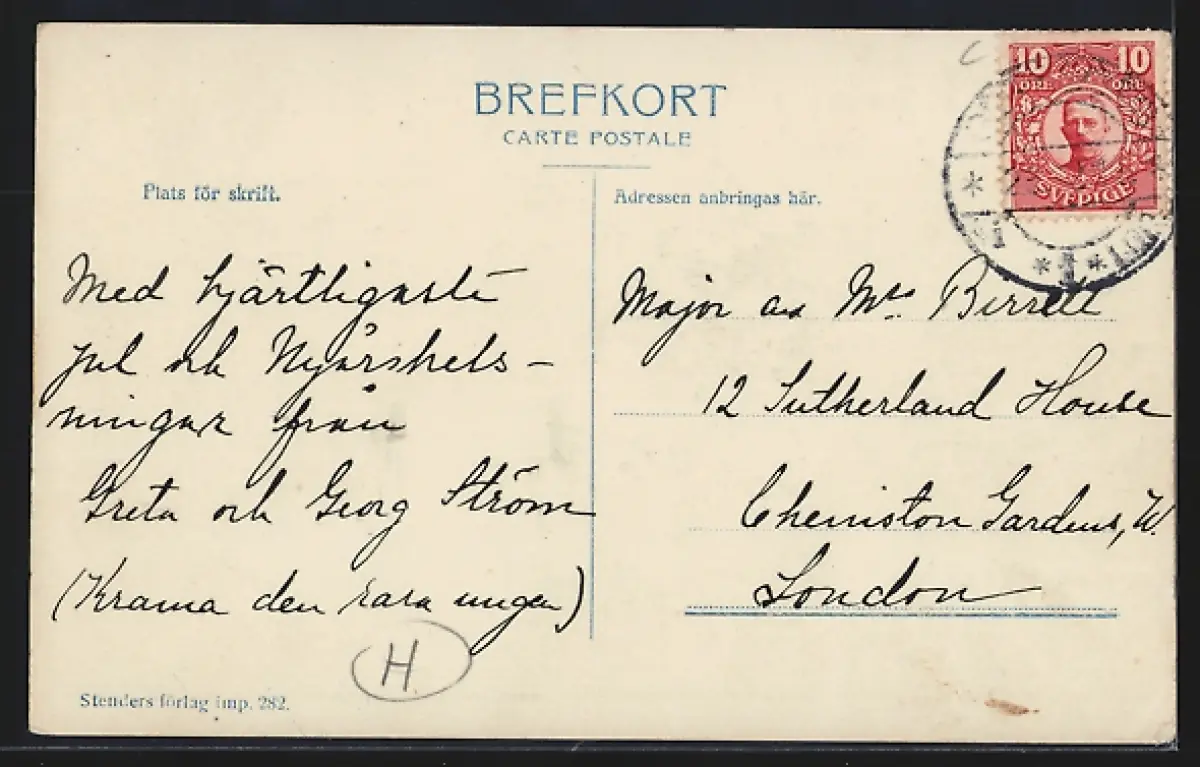 BREFKORT
CARTE POSTALE
Plats för skrift.
Med hjärtligaste
jul och Nyårshels-
ningar från
Greta och Georg Ström
(Krama den rara ungen)
H
Stenders förlag imp. 282.
10 10
ÖRE ÖRE
SVERIGE
Adressen anbringas här.
Major Mrs. Birrell
12 Sutherland House
Cheniston Gardens, W.
London